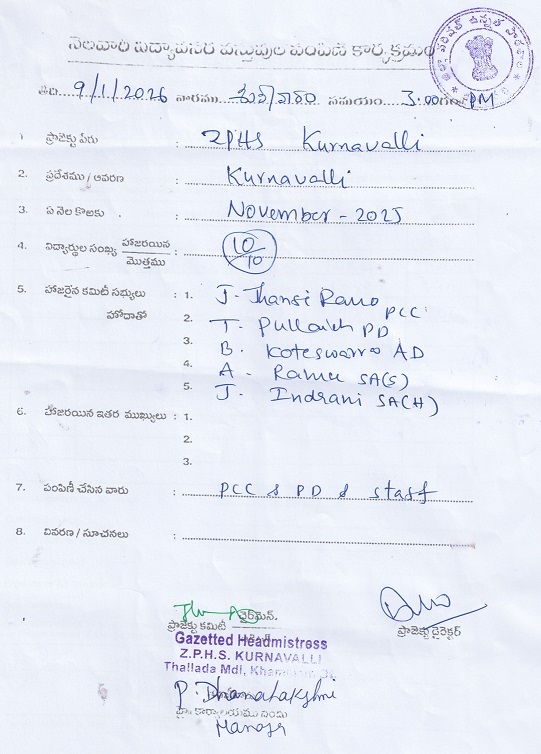 నెలవారి విద్యావసర వస్తువుల పంపిణి కార్యక్రమం
తేది. 9/1/2026 వారము శుక్రవారం సమయం 3.00గం PM
1 ప్రాజెక్టు పేరు : ZPHS Kurnavalli
2. ప్రదేశము / ఆవరణ : Kurnavalli
3. ఏ నెల కొఱకు : November - 2025
4. విద్యార్థుల సంఖ్య హాజరయిన/మొత్తము : 10/10
5. హాజరైన కమిటీ సభ్యులు : 1. J. Jhansi Rano PCC
హోదాతో 2. T. Pullaiah PD
3. B. Koteswarao AD
4. A. Ramu SA(S)
5. J. Indrani SA(H)
6. హాజరయిన ఇతర ముఖ్యులు : 1.
2.
3.
7. పంపిణీ చేసిన వారు : PCC & PD & Staff
8. వివరణ / సూచనలు :
ప్రాజెక్టు కమిటీ చైర్‌మెన్.
ప్రాజెక్టు డైరెక్టర్
Gazetted Headmistress
Z.P.H.S. KURNAVALLI
Thallada Mdl, Khammam Dt.
P. Dhanalakshmi